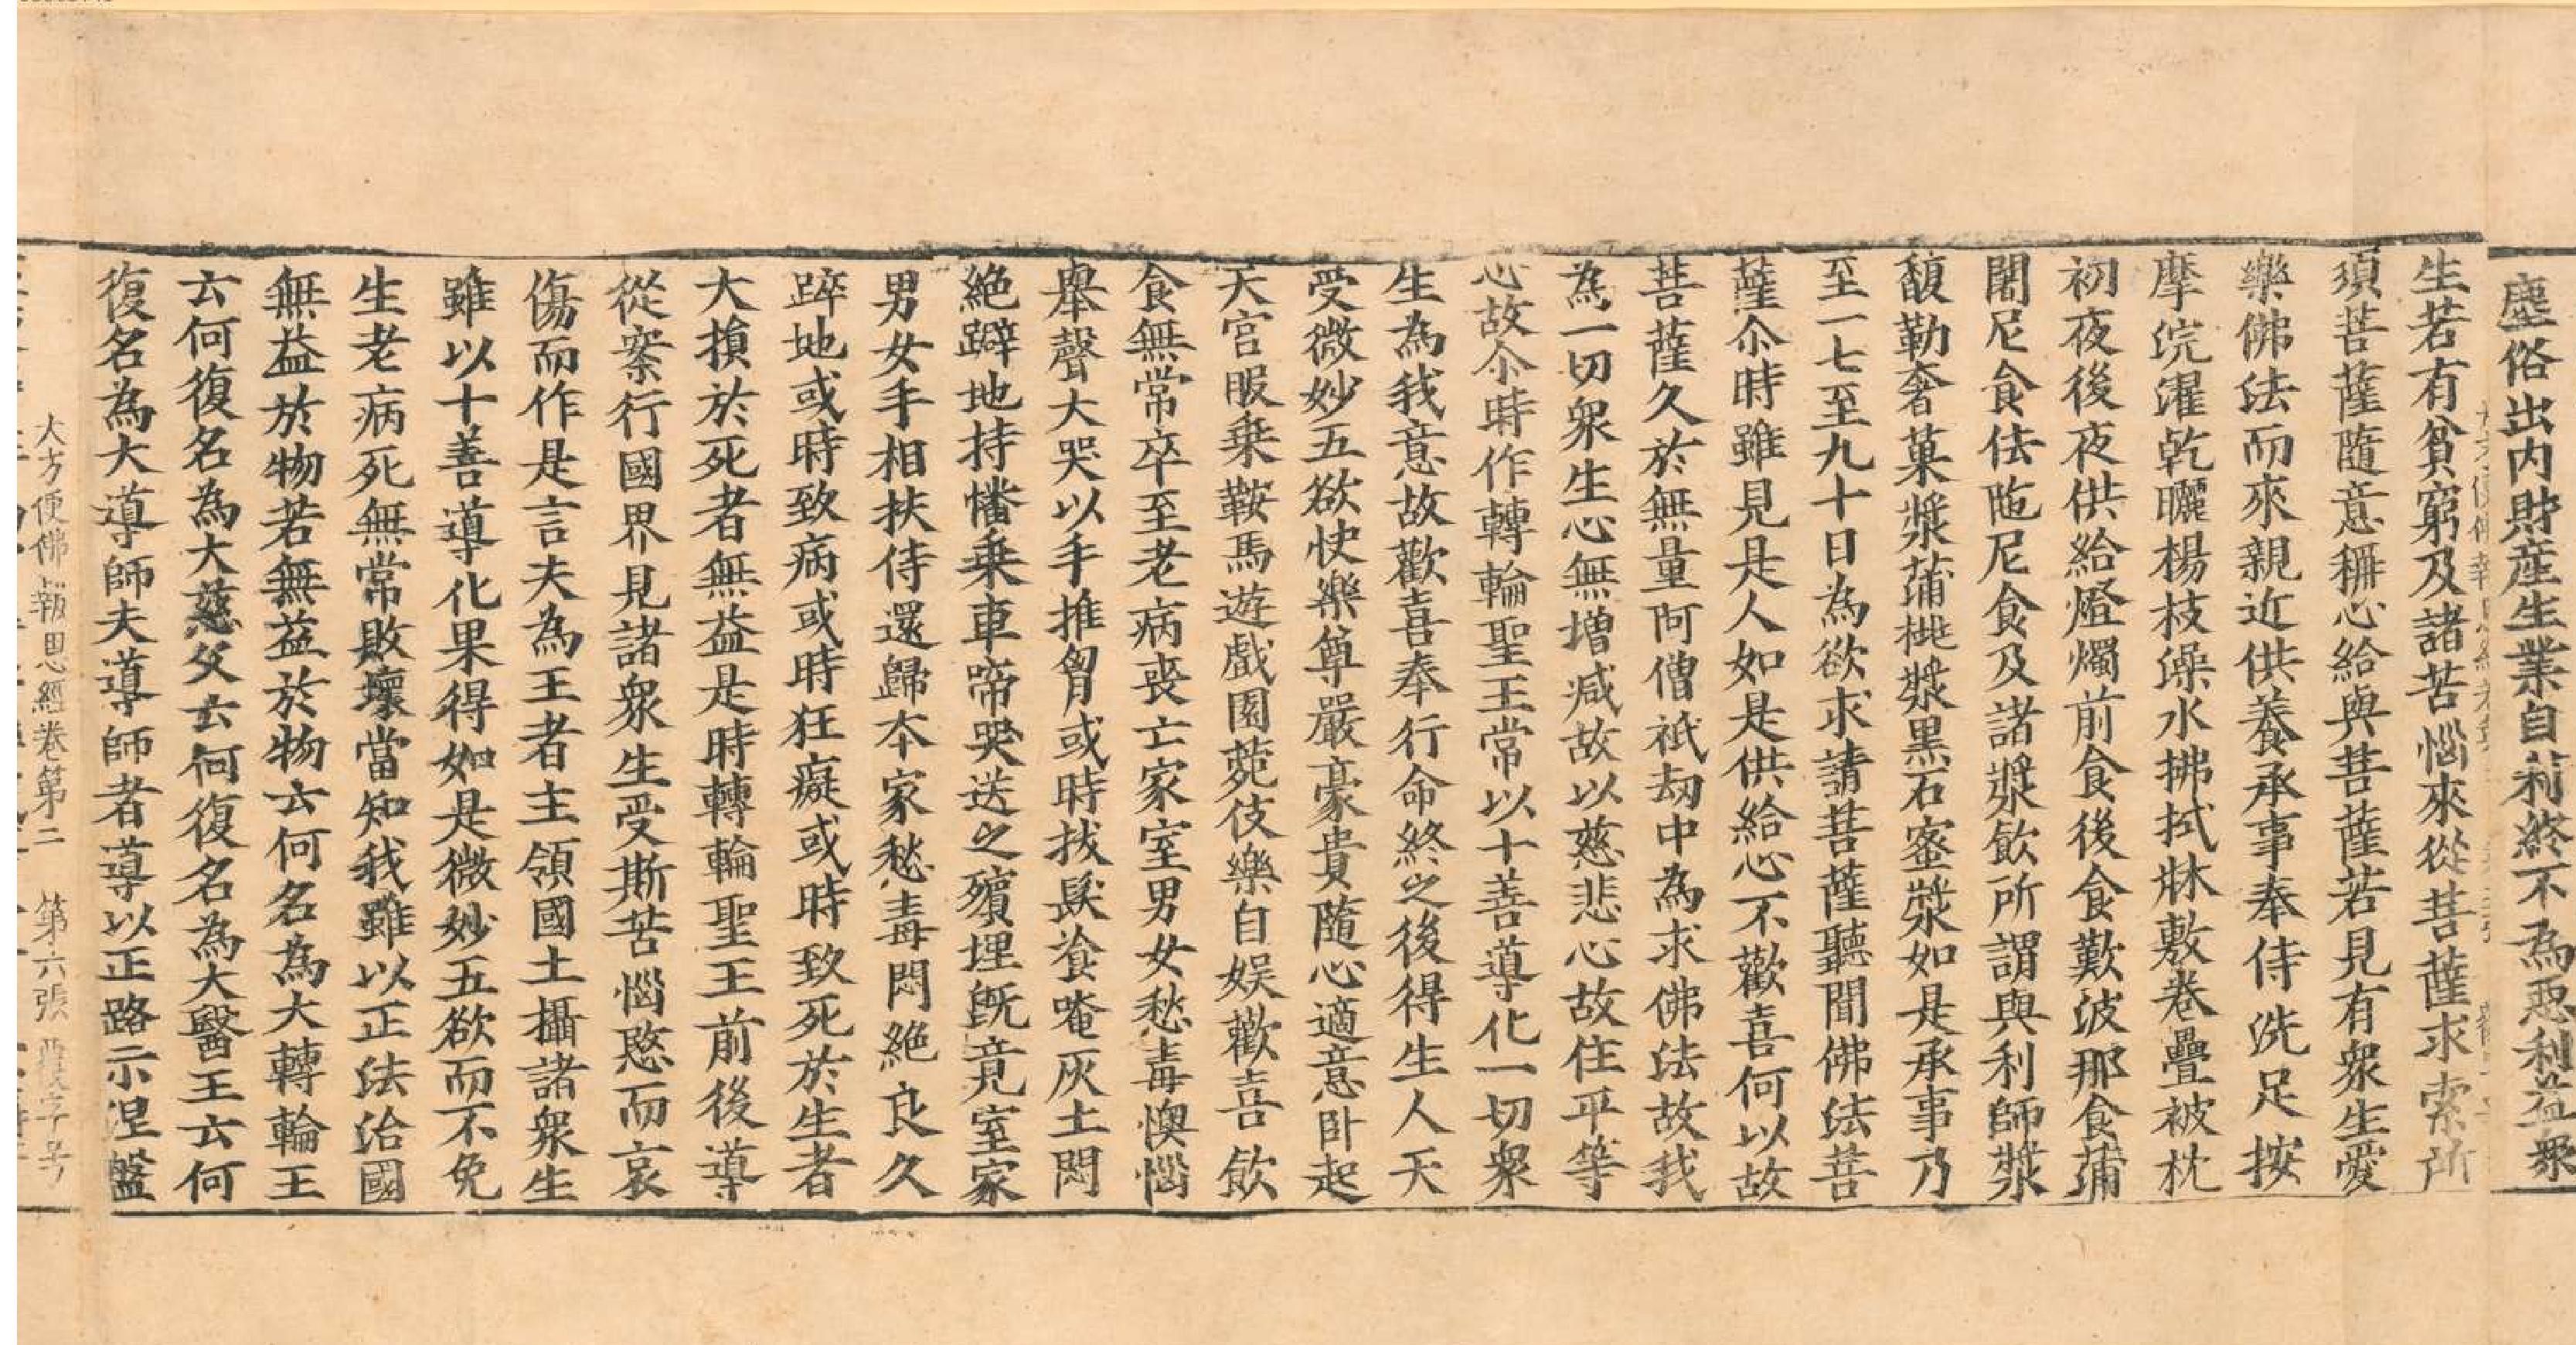 塵俗出内財産生業自莉終不為惡利益衆
生若有貧窮及諸苦惱來從菩薩求索所
須菩薩隨意稱心給與菩薩若見有衆生愛
樂佛法而來親近供養承事奉侍洗足按
摩浣濯乾曬楊枝澡水拂拭牀敷卷疊被枕
初夜後夜供給燈燭前食後食歎波那食蒲
闍尼食佉陁尼食及諸漿飲所謂與利師漿
馥勒奢菓漿蒲桃漿黑石蜜漿如是承事乃
至一七至九十日為欲求請菩薩聽聞佛法菩
薩尒時雖見是人如是供給心不歡喜何以故
菩薩久於無量阿僧祇劫中為求佛法故我
為一切衆生心無增減故以慈悲心故住平等
心故尒時作轉輪聖王常以十善導化一切衆
生為我意故歡喜奉行命終之後得生人天
受微妙五欲快樂尊嚴豪貴隨心適意卧起
天宮服乗鞍馬遊戲園菀伎樂自娱歡喜飲
食無常卒至老病喪亡家室男女愁毒懊惱
舉聲大哭以手推胷或時拔髮飡唵灰土悶
絶躃地持幡乗車啼哭送之殯埋旣竟室家
男女手相扶侍還歸本家愁毒悶絶良久
躃地或時致病或時狂癡或時致死於生者
大損於死者無益是時轉輪聖王前後導
從案行國界見諸衆生受斯苦惱愍而哀
傷而作是言夫為王者主領國土攝諸衆生
雖以十善導化果得如是微妙五欲而不免
生老病死無常敗壞當知我雖以正法治國
無益於物若無益於物云何名為大轉輪王
云何復名為大慈父云何復名為大醫王云何
復名為大導師夫導師者導以正路示涅盤
大方便佛報恩經卷第二　第六張